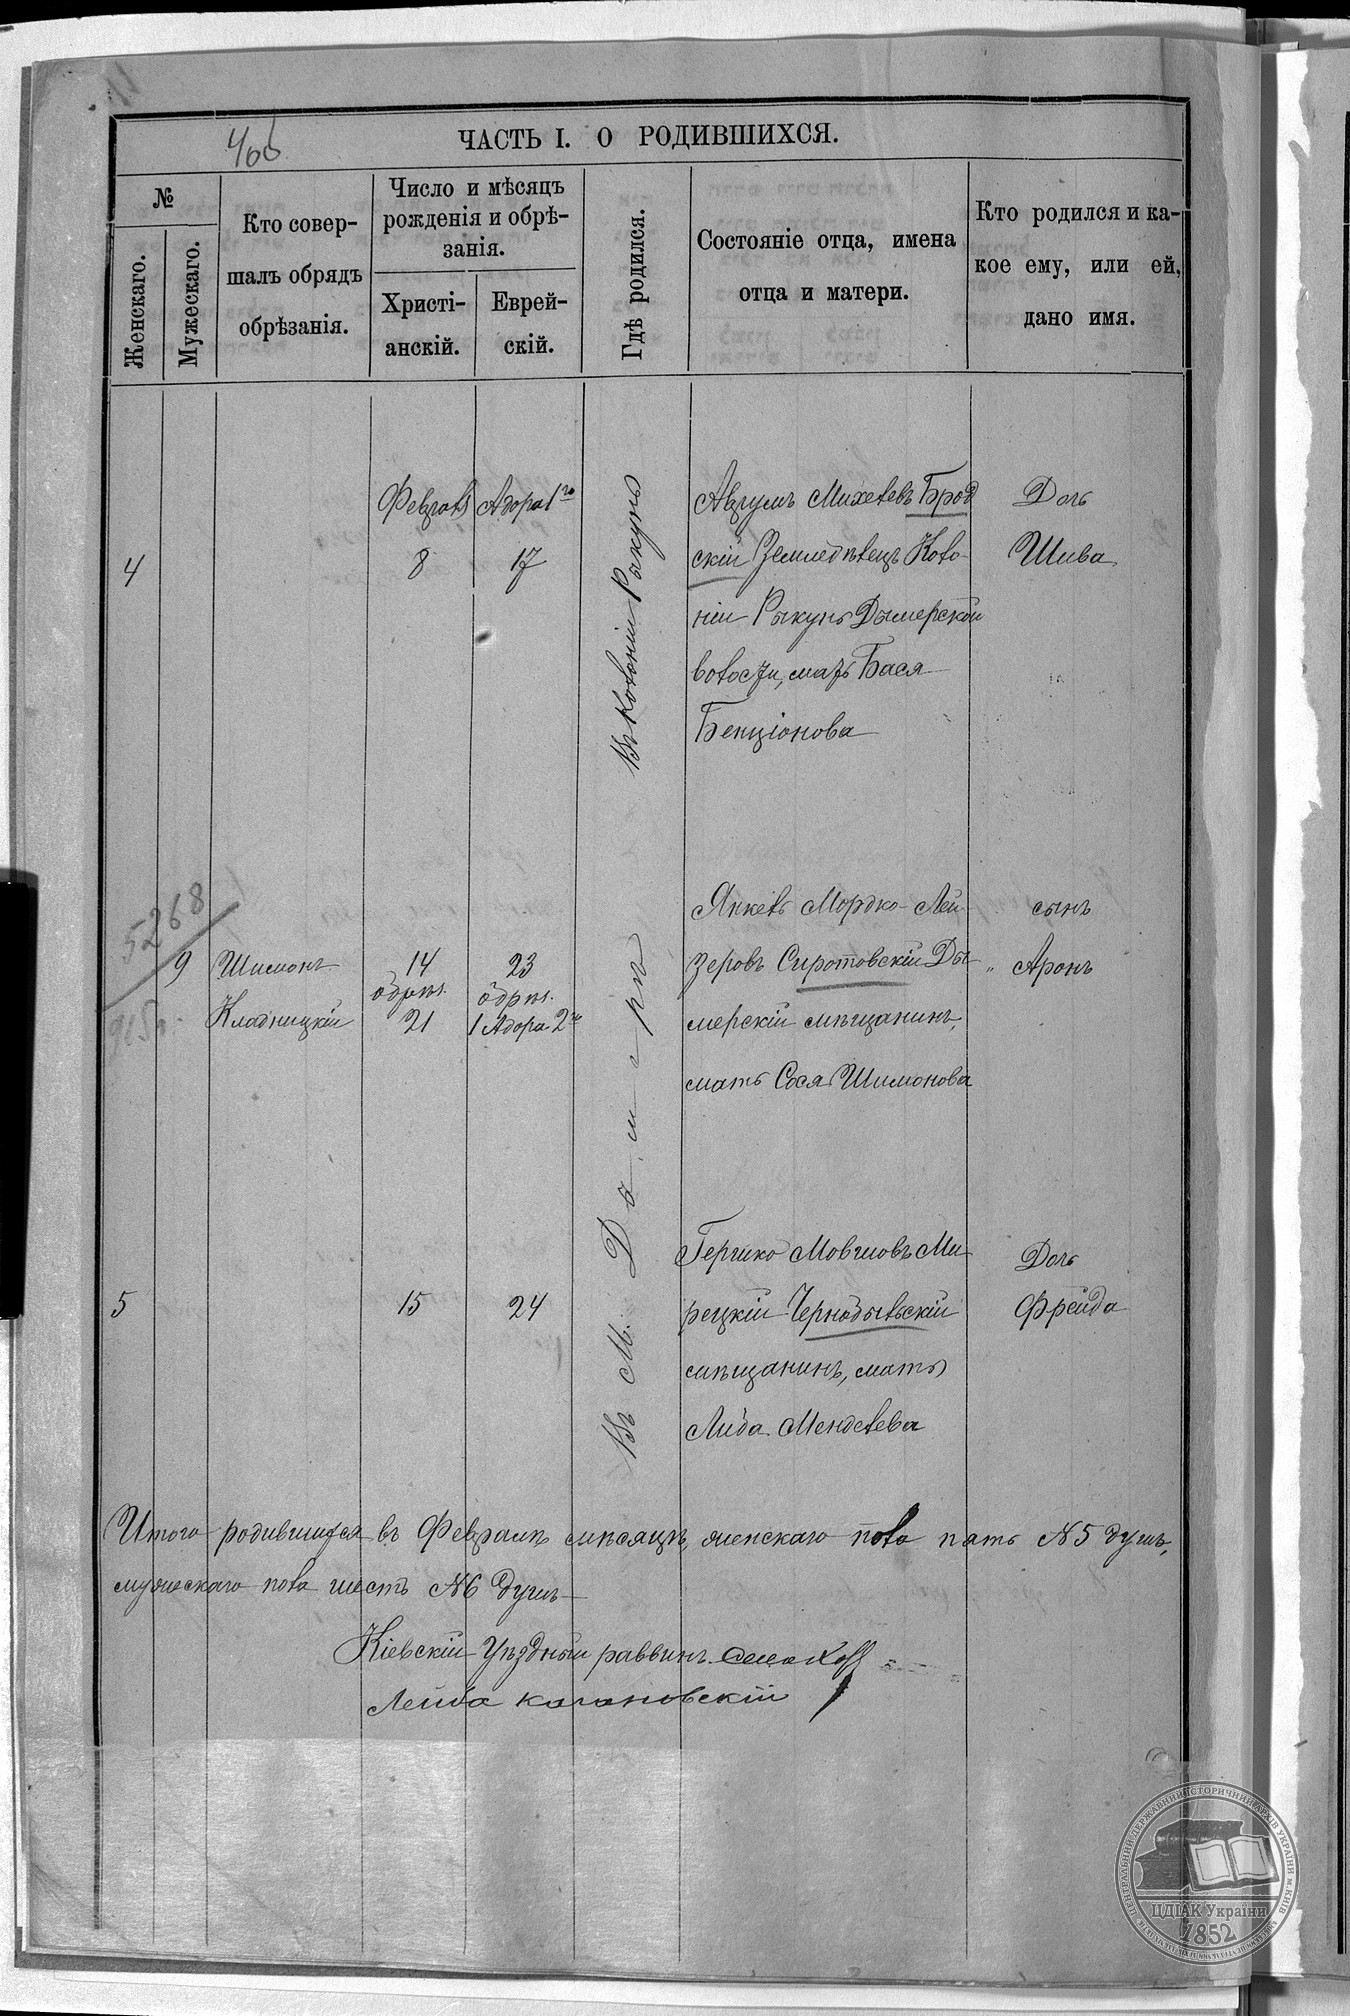 ЧАСТЬ I. О РОДИВШИХСЯ.
№
Женскаго.
Мужескаго.
Кто совер-
шалъ обрядъ
обрѣзанія.
Число и мѣсяцъ
рожденія и обрѣ-
занія.
Христі-
анскій.
Еврей-
скій.
Гдѣ родился.
Состояніе отца, имена
отца и матери.
Кто родился и ка-
кое ему, или ей,
дано имя.
4
Февраль
8
Адора 1го
17
Въ Колоніи Рыкунь
Михелевъ Брод
скій Земледѣлецъ Коло-
ніи Рыкунь Дымерской
волости, мать Бася
Бенціонова
Дочь
Шива
5268
915
9
Шимонъ
Кладницкій
14
обрѣз.
21
23
обрѣз.
1 Адора 2го
Въ М. Дымерѣ
Янкель Мордко-Лей-
зеровъ Сиротовскій Ды-
мерскій мѣщанинъ,
мать Сося Шимонова
сынъ
Аронъ
5
15
24
Гершко Мовшовъ Ми-
рецкій Чернобыльскій
мѣщанинъ, мать
Либа Менделева
Дочь
Фрейда
Итого родившихся въ Февралѣ мѣсяцѣ, женскаго пола пять №5 душъ,
мужескаго пола шесть №6 душъ
Кіевскій Уѣздный раввинъ
Лейба Кагановскій
ЦЕНТРАЛЬНИЙ ДЕРЖАВНИЙ ІСТОРИЧНИЙ АРХІВ УКРАЇНИ м. КИЇВ
ЦДІАК України
1852